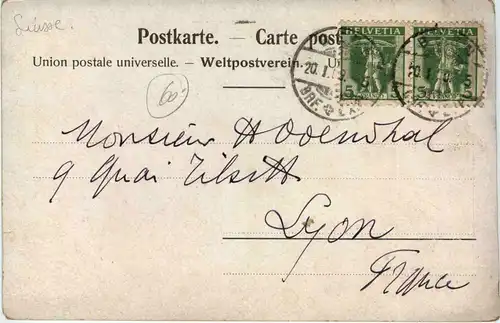 Suisse.
Postkarte. — Carte post
Union postale universelle. — Weltpostverein. — U
HELVETIA HELVETIA
20. I.
5 5 5 5
BRF.
60
Monsieur Hodenthal
9 Quai Tilsitt
Lyon
France